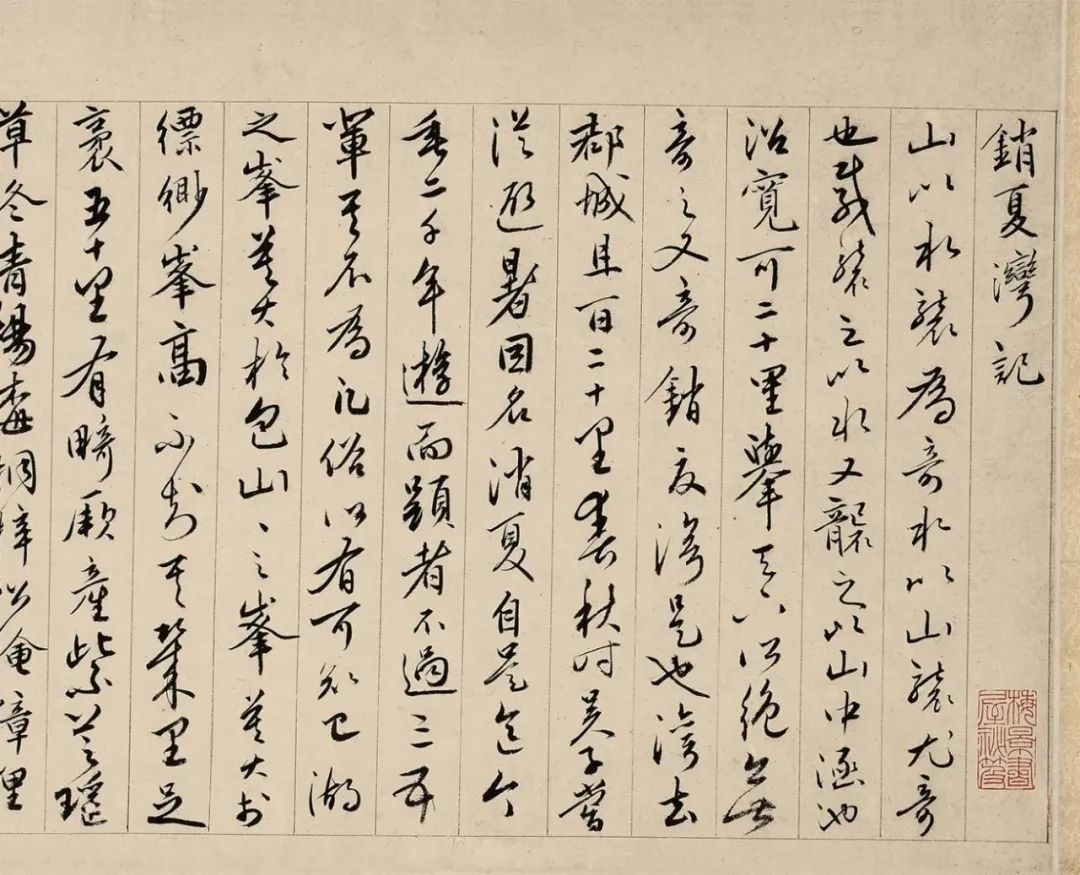 銷夏灣記
山以水襲為奇水以山襲尤奇
也載襲之以水又襲之以山中涵池
沼寬可二十里舉天下所絕無
奇之又奇銷夏灣是也灣去
郡城且百二十里春秋時吳子嘗
從避暑因名消夏自是迄今
垂二千年遊而顯者不過三五
輩其不為凡俗所有可知已湖
之峯莫大於包山〻之峯莫大於
縹緲峯高不其里足
袤五十里有畸厥產紫芝瑤
草冬青楊梅
梅景書屋秘笈